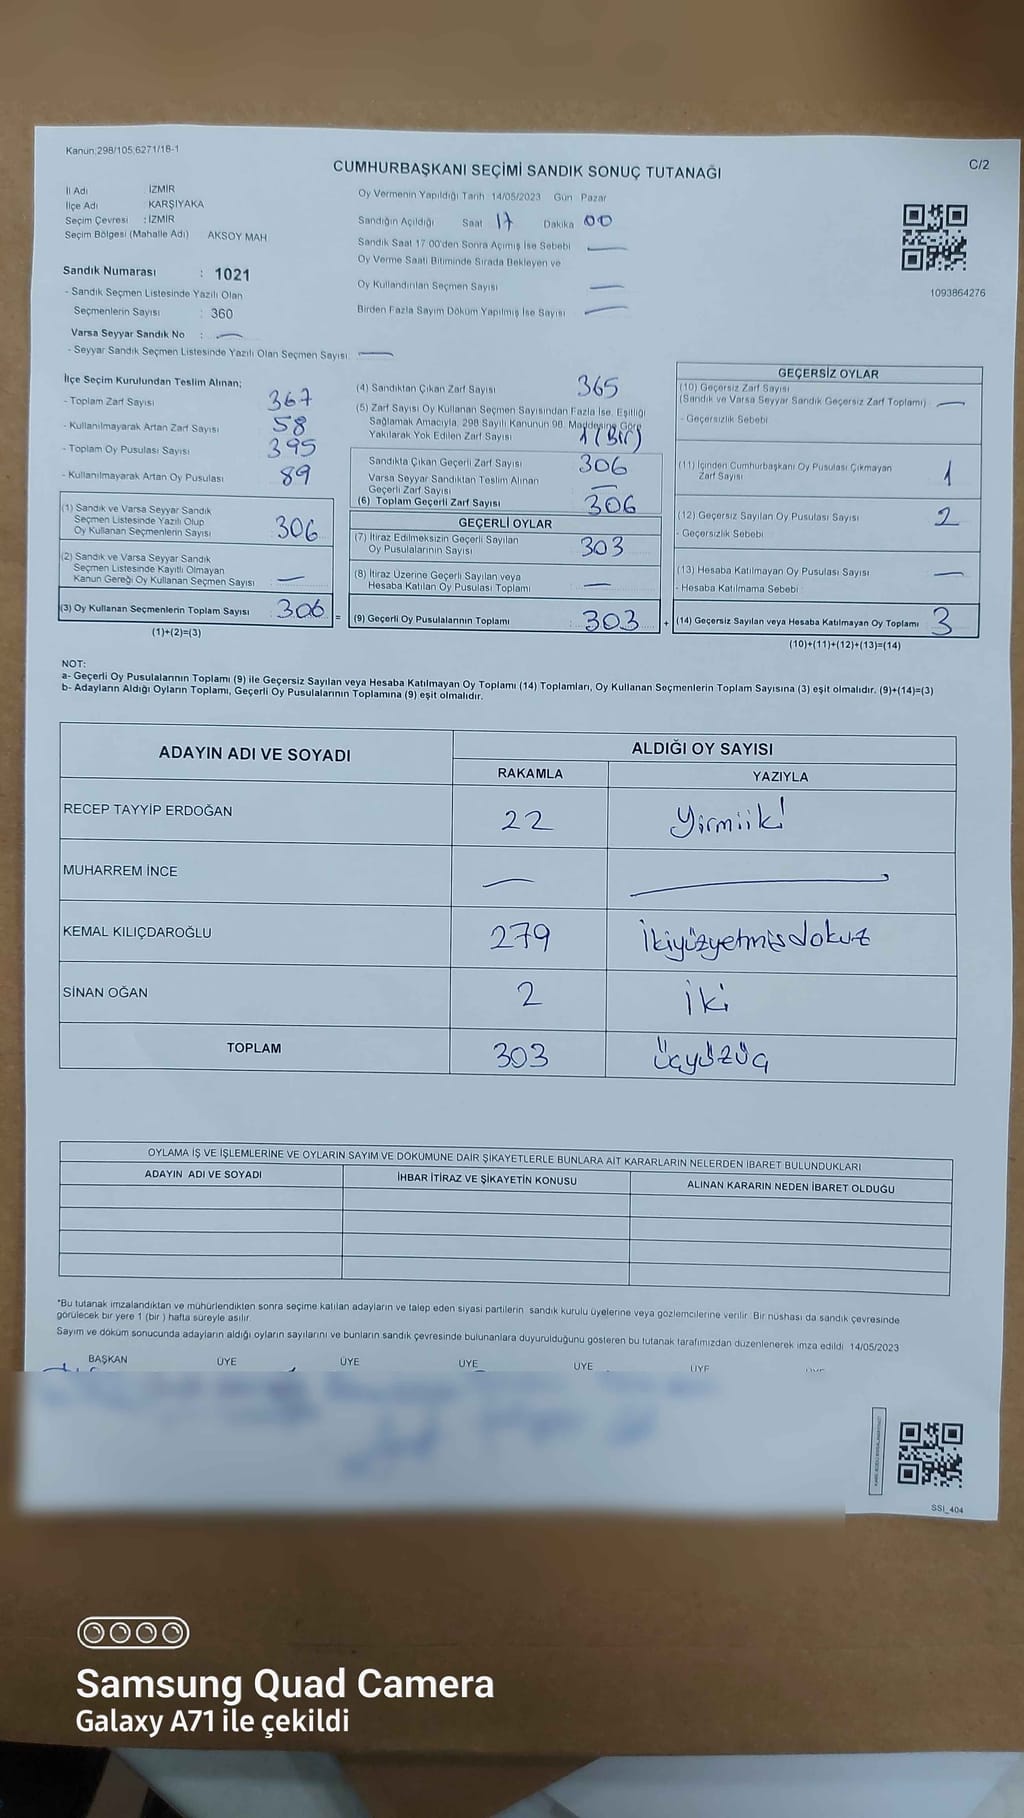 Kanun:298/105,6271/18-1
CUMHURBAŞKANI SEÇİMİ SANDIK SONUÇ TUTANAĞI
C/2
İl Adı İZMİR
İlçe Adı KARŞIYAKA
Seçim Çevresi : İZMİR
Seçim Bölgesi (Mahalle Adı) AKSOY MAH
Oy Vermenin Yapıldığı Tarih 14/05/2023 Gün Pazar
Sandığın Açıldığı Saat 17 Dakika 00
Sandık Saat 17 00'den Sonra Açımış İse Sebebi —
Oy Verme Saati Bitiminde Sırada Bekleyen ve
Oy Kullandırılan Seçmen Sayısı —
Birden Fazla Sayım Döküm Yapılmış İse Sayısı —
1093864276
Sandık Numarası : 1021
- Sandık Seçmen Listesinde Yazılı Olan
Seçmenlerin Sayısı : 360
Varsa Seyyar Sandık No : —
- Seyyar Sandık Seçmen Listesinde Yazılı Olan Seçmen Sayısı —
İlçe Seçim Kurulundan Teslim Alınan;
- Toplam Zarf Sayısı 367
- Kullanılmayarak Artan Zarf Sayısı 58
- Toplam Oy Pusulası Sayısı 395
- Kullanılmayarak Artan Oy Pusulası 89
(1) Sandık ve Varsa Seyyar Sandık
Seçmen Listesinde Yazılı Olup
Oy Kullanan Seçmenlerin Sayısı 306
(2) Sandık ve Varsa Seyyar Sandık
Seçmen Listesinde Kayıtlı Olmayan
Kanun Gereği Oy Kullanan Seçmen Sayısı —
(3) Oy Kullanan Seçmenlerin Toplam Sayısı 306 =
(1)+(2)=(3)
(4) Sandıktan Çıkan Zarf Sayısı 365
(5) Zarf Sayısı Oy Kullanan Seçmen Sayısından Fazla İse, Eşitliği
Sağlamak Amacıyla, 298 Sayılı Kanunun 98. Maddesine Göre
Yakılarak Yok Edilen Zarf Sayısı 1 (Bir)
Sandıkta Çıkan Geçerli Zarf Sayısı 306
Varsa Seyyar Sandıktan Teslim Alınan
Geçerli Zarf Sayısı —
(6) Toplam Geçerli Zarf Sayısı 306
GEÇERLİ OYLAR
(7) İtiraz Edilmeksizin Geçerli Sayılan
Oy Pusulalarının Sayısı 303
(8) İtiraz Üzerine Geçerli Sayılan veya
Hesaba Katılan Oy Pusulası Toplamı —
(9) Geçerli Oy Pusulalarının Toplamı 303 +
GEÇERSİZ OYLAR
(10) Geçersiz Zarf Sayısı
(Sandık ve Varsa Seyyar Sandık Geçersiz Zarf Toplamı) —
- Geçersizlik Sebebi
(11) İçinden Cumhurbaşkanı Oy Pusulası Çıkmayan
Zarf Sayısı 1
(12) Geçersiz Sayılan Oy Pusulası Sayısı 2
- Geçersizlik Sebebi
(13) Hesaba Katılmayan Oy Pusulası Sayısı —
- Hesaba Katılmama Sebebi
(14) Geçersiz Sayılan veya Hesaba Katılmayan Oy Toplamı 3
(10)+(11)+(12)+(13)=(14)
NOT:
a- Geçerli Oy Pusulalarının Toplamı (9) ile Geçersiz Sayılan veya Hesaba Katılmayan Oy Toplamı (14) Toplamları, Oy Kullanan Seçmenlerin Toplam Sayısına (3) eşit olmalıdır. (9)+(14)=(3)
b- Adayların Aldığı Oyların Toplamı, Geçerli Oy Pusulalarının Toplamına (9) eşit olmalıdır.
ADAYIN ADI VE SOYADI ALDIĞI OY SAYISI
RAKAMLA YAZIYLA
RECEP TAYYİP ERDOĞAN 22 Yirmiiki
MUHARREM İNCE — —
KEMAL KILIÇDAROĞLU 279 İkiyüzyetmişdokuz
SİNAN OĞAN 2 İki
TOPLAM 303 Üçyüzüç
OYLAMA İŞ VE İŞLEMLERİNE VE OYLARIN SAYIM VE DÖKÜMÜNE DAİR ŞİKAYETLERLE BUNLARA AİT KARARLARIN NELERDEN İBARET BULUNDUKLARI
ADAYIN ADI VE SOYADI İHBAR İTİRAZ VE ŞİKAYETİN KONUSU ALINAN KARARIN NEDEN İBARET OLDUĞU
*Bu tutanak imzalandıktan ve mühürlendikten sonra seçime katılan adayların ve talep eden siyasi partilerin sandık kurulu üyelerine veya gözlemcilerine verilir. Bir nüshası da sandık çevresinde
görülecek bir yere 1 (bir ) hafta süreyle asılır.
Sayım ve döküm sonucunda adayların aldığı oyların sayılarını ve bunların sandık çevresinde bulunanlara duyurulduğunu gösteren bu tutanak tarafımızdan düzenlenerek imza edildi 14/05/2023
BAŞKAN ÜYE ÜYE ÜYE ÜYE ÜYE
SSI_404
Samsung Quad Camera
Galaxy A71 ile çekildi